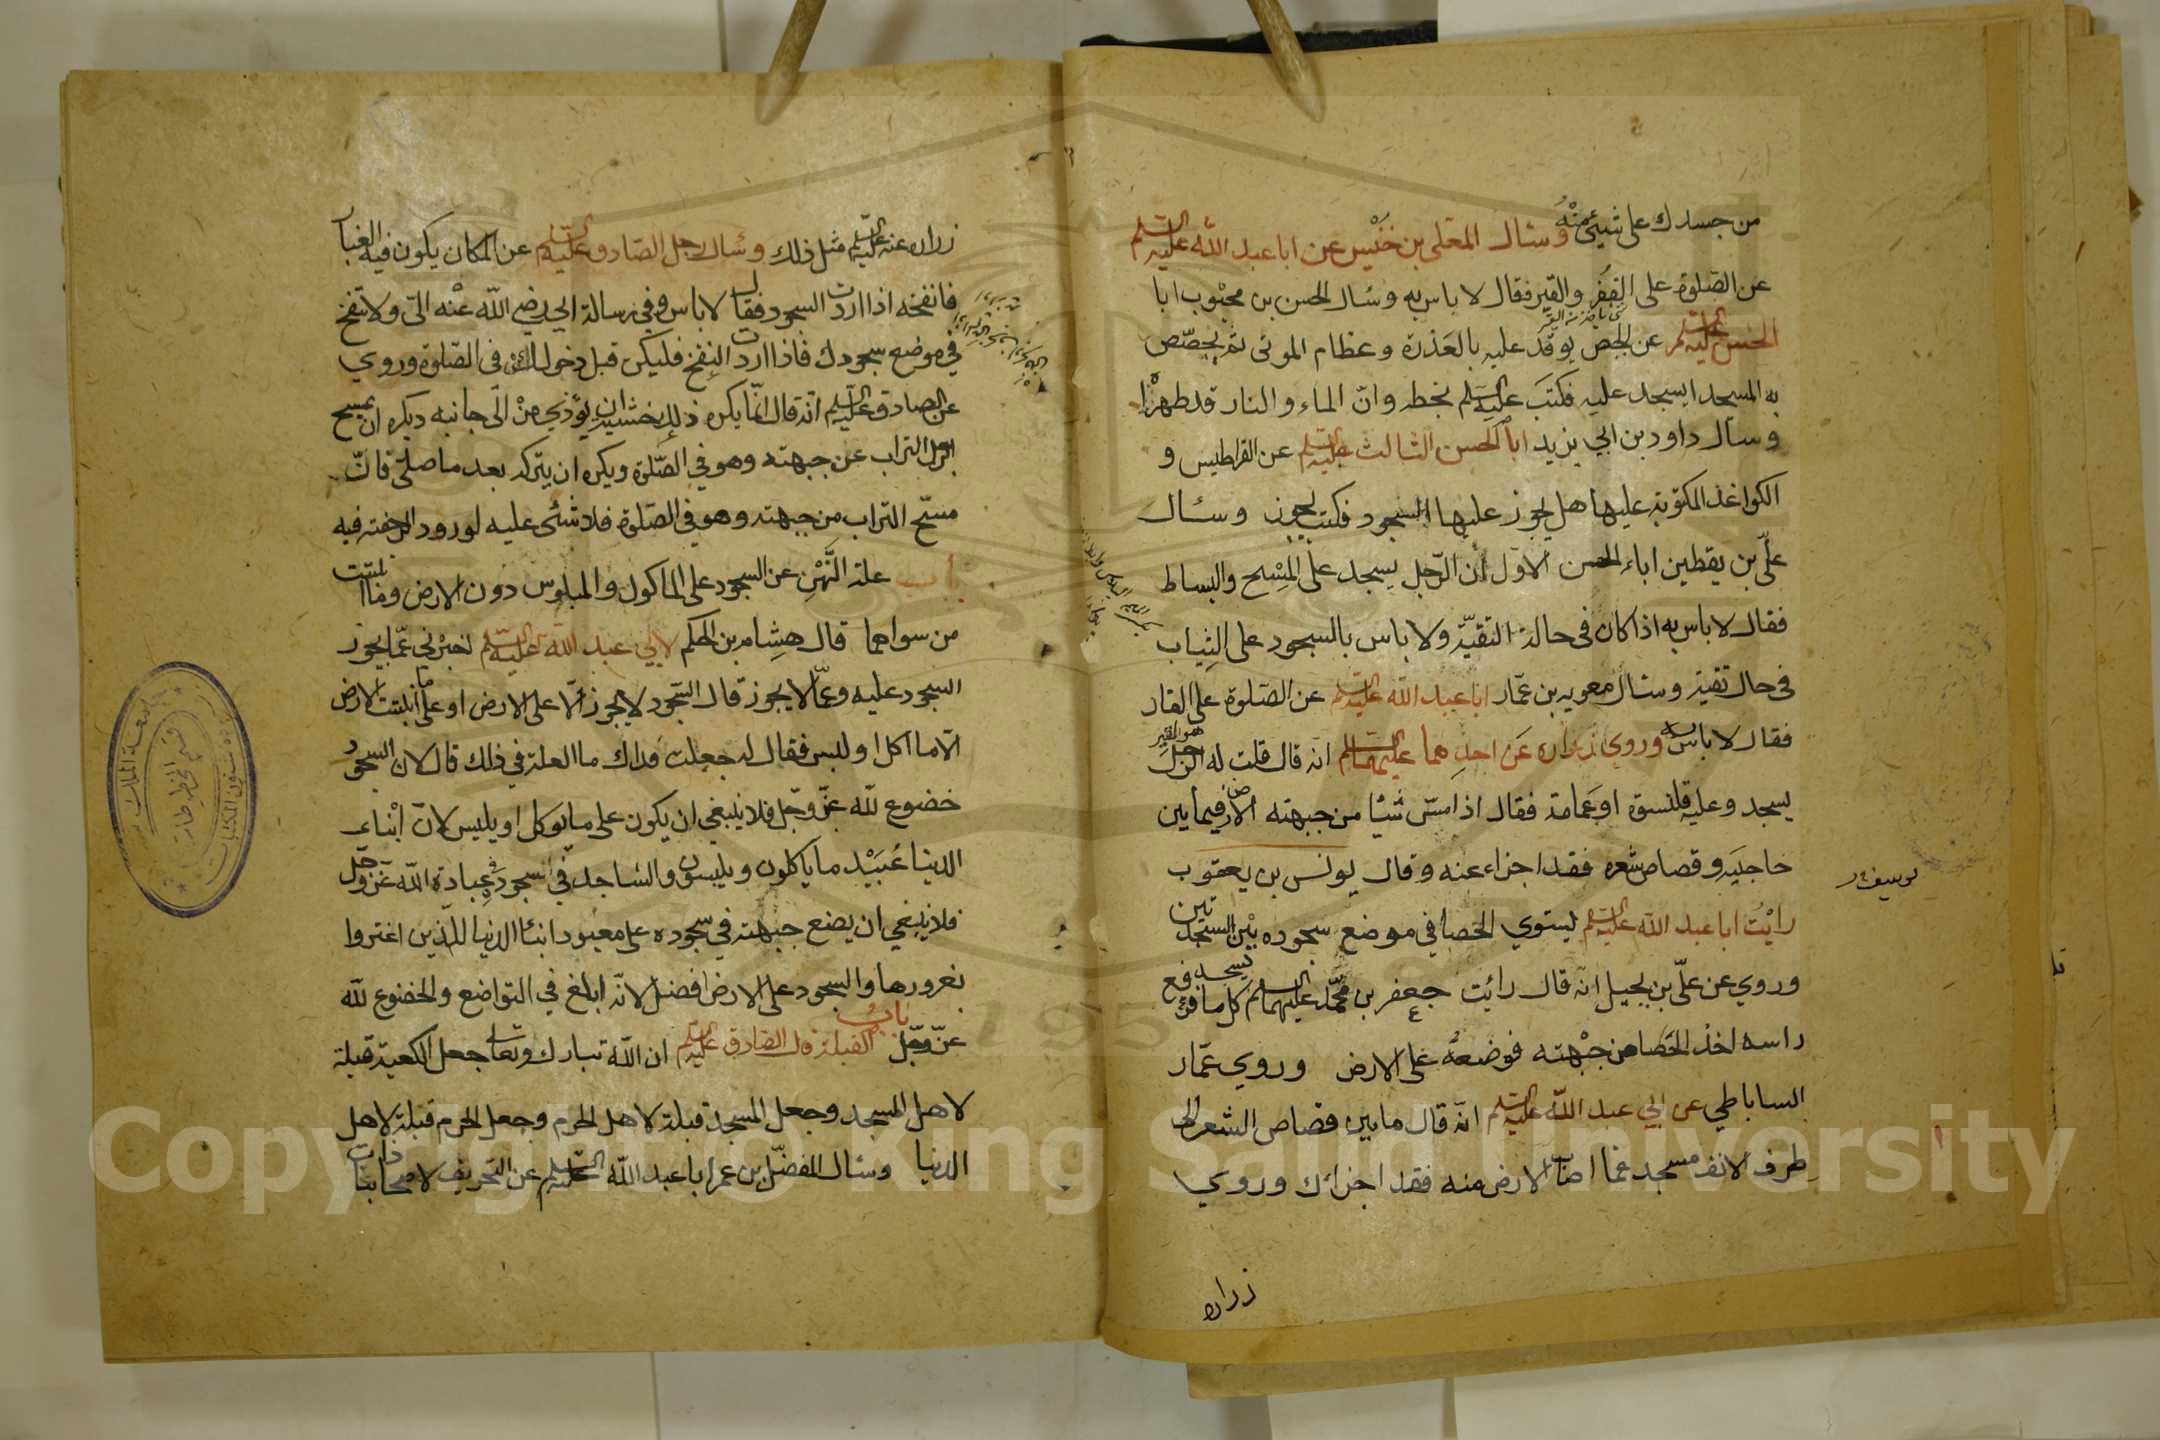 من جسدك على شيئ منه وسئال المعلى بن خنيس عن ابا عبد الله عليه السلم
عن الصلوة على القفر والقير فقال لا باس به وسئال الحسن بن محبوب ابا
الحسن عليه السلم عن الجص يوقد عليه بالعذرة وعظام الموتى ثم يجصص
به المسجد ايسجد عليه فكتب عليه السلم بخطه وان الماء والنار قد طهرا
وسأل داود بن ابي يزيد ابا الحسن الثالث عليه السلم عن القراطيس و
الكواغذ المكتوبة عليها هل يجوز عليها السجود فكتب يجوز وسئال
على بن يقطين اباء الحسن الاول أن الرجل يسجد على المسح والبساط
فقال لا باس به اذا كان فى حالة التقية ولا باس بالسجود على الثياب
فى حال تقية وسئال معويه بن عمار ابا عبد الله عليه السلم عن الصلوة على القار
هو القير
فقال لا باس به وروى زراره عن احدهما عليهما السلم انه قال قلت له الرجل
يسجد وعليه قلنسوة او عمامة فقال اذا مس شيئا من جبهته الارض فيما بين
حاجبيه وقصاص شعره فقد اجزاء عنه وقال يونس بن يعقوب
رايت ابا عبد الله عليه السلم يستوي الحصا في موضع سجوده بين السجدتين
وروي عن على بن بجيل انه قال رائيت جعفر بن محمد عليهما السلم كل ما سجد فرفع
راسه اخذ الحصا من جبهته فوضعه على الارض وروي عمار
الساباطي عن ابي عبد الله عليه السلم انه قال ما بين قصاص الشعر الى
طرف الانف مسجد فما اصاب الارض منه فقد اجزائك وروي
زراره
زراره عنه عليه السلم مثل ذلك وسئال رجل الصادق عليه السلم عن المكان يكون فيه الغبار
فانفخه اذا اردت السجود فقال لا باس وفي رسالة ابي رضي الله عنه الى ولا تنفخ
في موضع سجودك فاذا اردت النفخ فليكن قبل دخولك فى الصلوة وروي
عن الصادق عليه السلم انه قال انما يكره ذلك خشية ان يوذي من الى جانبه ويكره ان يمسح
الرجل التراب عن جبهته وهو في الصلوة ويكره ان يتركه بعد ما صلى فان
مسح التراب من جبهته وهو في الصلوة فلا شئى عليه لورود الرخصة فيه
باب علة النهي عن السجود على الماكول والملبوس دون الارض وما انبتت
من سواهما قال هشام بن الحكم لابي عبد الله عليه السلم اخبرني عما يجوز
السجود عليه وعما لا يجوز قال السجود لا يجوز الا على الارض او على ما انبتت الارض
الا ما اكل او لبس فقال له جعلت فداك ما العلة في ذلك قال لان السجود
خضوع لله عز وجل فلا ينبغي ان يكون على ما يوكل او يلبس لان ابناء
الدنيا عبيد ما ياكلون ويلبسون والساجد في سجوده في عبادة الله عز وجل
فلا ينبغي ان يضع جبهته في سجوده على معبود ابناء الدنيا الذين اغتروا
بغرورها والسجود على الارض افضل لانه ابلغ في التواضع والخضوع لله
عز وجل باب القبلة قال الصادق عليه السلم ان الله تبارك وتعالى جعل الكعبة قبلة
لاهل المسجد وجعل المسجد قبلة لاهل الحرم وجعل الحرم قبلة لاهل
الدنيا وسئال المفضل بن عمر ابا عبد الله عليه السلم عن التحريف لاصحابنا ذات
Copyright © King Saud University
1957